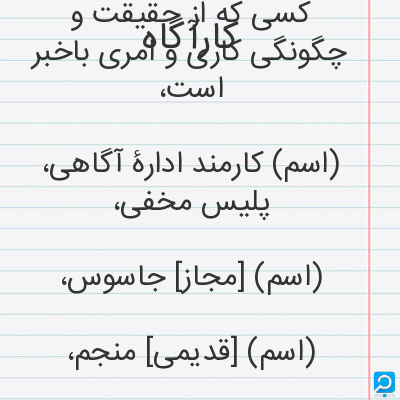 کسی که از حقیقت و
کارآگاه
چگونگی کاری و امری باخبر
است،
(اسم) کارمند ادارهٔ آگاهی،
پلیس مخفی،
(اسم) [مجاز] جاسوس،
(اسم) [قدیمی] منجم،